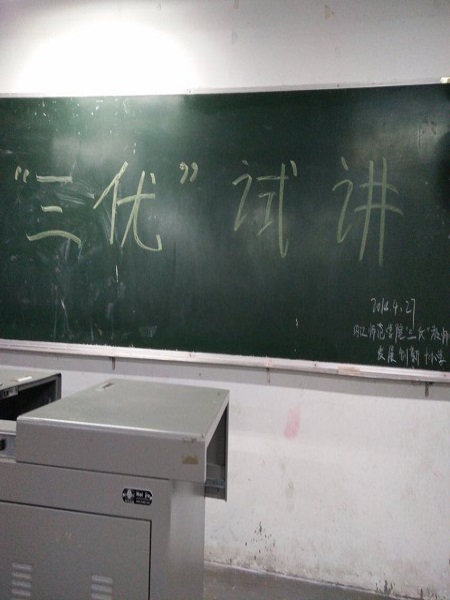 “三优”试讲
2014.4.27
内江师范学院“三优”教师
发展创新